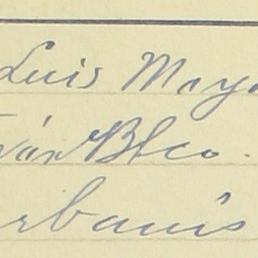 Luis Maya
ván Blco.
rbanis